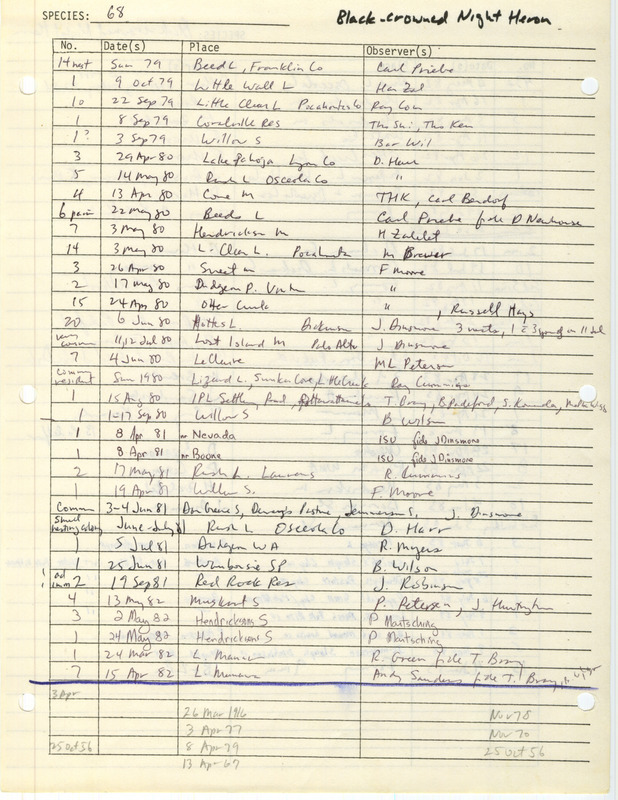 SPECIES: 68 Black-crowned Night Heron
No. Date(s) Place Observer(s)
14 nest Sum 79 Beeds L, Franklin Co Carl Priebe
1 9 Oct 79 Little Wall L Han Zal
10 22 Sep 79 Little Clear L Pocahontas Co Ray Cum
1 8 Sep 79 Coralville Res Tho Shi, Tho Ken
1? 3 Sep 79 Willow S Bar Wil
3 29 Apr 80 Lake Pahoja Lyon Co D. Harr
5 14 May 80 Rush L Osceola Co "
4 13 Apr 80 Cone M THK, Carl Bendorf
6 pair 22 May 80 Beeds L Carl Priebe fide D Newhouse
7 3 May 80 Hendrickson M H Zaletel
14 3 May 80 L. Clear L. Pocahontas M Brewer
3 26 Apr 80 Sweet M F Moore
2 17 May 80 Dudgeon P. Vinton "
15 24 Apr 80 Otter Creek ", Russell Hays
20 6 Jun 80 Hottes L. Dickinson J. Dinsmore 3 nests, 1 c̄ 3 young on 11 Jul
very common 11, 12 Jul 80 Lost Island M Palo Alto J Dinsmore
7 4 Jun 80 LeClaire ML Peterson
common resident Sum 1980 Lizard L, Sunken Cove, Little Clear L Ray Cummins
1 15 Aug 80 IPL Settling Pond, Pottawattamie T. Bray, B Padelford,
1 1-17 Sep 80 Willow S B Wilson
1 8 Apr 81 nr Nevada ISU fide J Dinsmore
1 8 Apr 81 nr Boone ISU fide J Dinsmore
2 17 May 81 Rush L. Laurens R. Cummins
19 Apr 81 Willow S. F. Moore
Common 3-4 Jun 81 Dan Greene S, Deweys Pasture, Jemmerson S, J. Dinsmore
Small nesting colony June-July 81 Rush L Osceola Co D. Harr
1 5 Jul 81 Dudgeon WA R. Myers
1 25 Jun 81 Waubonsie SP B. Wilson
1 ad 1 imm 2 19 Sep 81 Red Rock Res J Robinson
4 13 May 82 Muskrat S P. Petersen, J. Huntington
3 2 May 82 Hendricksons S P Martsching
1 24 May 82 Hendricksons S P Martsching
1 24 Mar 82 L. Manawa R. Green fide T. Bray
7 15 Apr 82 L. Manawa Andy Saunders fide T. Bray,
3 Apr
26 Mar 1916 Nov 78
3 Apr 77 Nov 70
25 Oct 56 8 Apr 79 25 Oct 56
13 Apr 67